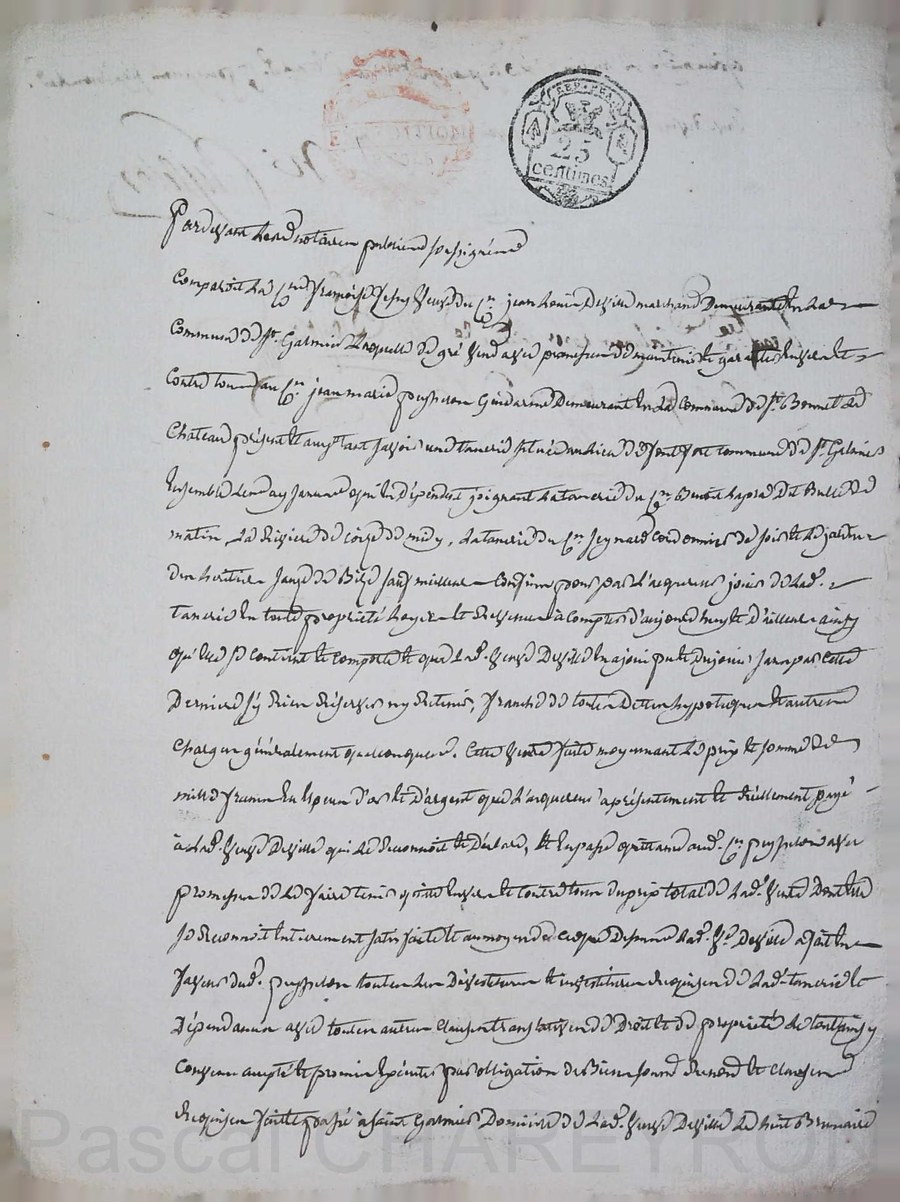 REP. FRA.
25
centimes
Pardevant les notaires publics soussignés
Comparoit la Cne françoise veuve du Cn jean Louis Deville marchand Demeurante en la
Commune de St. Galmier Laquelle de gré vend avec promesse de maintenir et garantir envers et
Contre tous au Cn. jean marie peysselon Gendarme Demeurant en la Commune de St. Bonnet le
Chateau présent et acceptant savoir une tanerie située au lieu de fontfort commune de St. Galmier
Ensemble les aysances qui en dépendent joignant la tanerie du Cn. Benoit de
matin, la Riviere de coize de midy, la tanerie du Cn. Cordonnier de soir et le jardin
des heritiers de Bize sauf meilleurs Confins pour par l'acquereur jouir de lad.
tanerie en toute propriété Loyers et Revenus à compter d'aujourd'huy et d'ailleurs ainsy
qu'elle se contient et comporte et que lad. veuve Deville en a joui pu et du jouir sans par cette
Derniere s'y Rien Réserver ny Retenir, franche de toutes Dettes hypoteques et autres
Charges généralement quelconques. Cette vente faite moyennant le prix et somme de
mille francs en especes d'or et d'argent que l'acquereur a présentement et réellement payé
à lad. veuve Deville qui le Reconnoit et déclare, et en passe quittance aud. Cn. peysselon avec
promesse de le faire tenir quitte envers et contre tous du prix total de lad. vente Dont elle
se Reconnoit entierement satisfaite et au moyen de ce que Dessus lad. Ve. Deville a fait en
faveur dud. peysselon toutes les Dévestitures et investitures Requises de lad. tanerie et
Dépendances avec toutes autres clauses translatives de Droit et de propriété le tout ainsy
Convenu accepté et promis exécuter par obligation de Biens soumis Renoncé et clauses
Requises fait et passé à saint Galmier Domicile de lad. veuve Deville le huit Brumaire
Pascal CHAREYRON